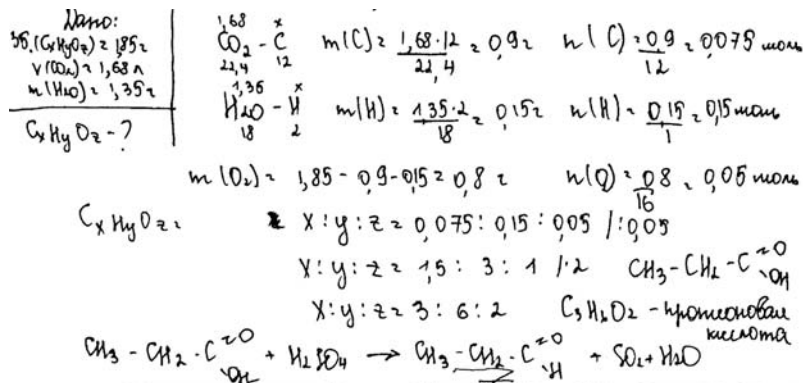 Дано:
35. (CxHyOz) = 1,85г
v(CO2) = 1,68 л
m(H2O) = 1,35г
CxHyOz - ?
1,68 x
CO2 - C m(C) = 1,68·12 / 22,4 = 0,9г n(C) = 0,9 / 12 = 0,075 моль
22,4 12
1,35 x
H2O - H m(H) = 1,35·2 / 18 = 0,15г n(H) = 0,15 / 1 = 0,15 моль
18 2
m(O2) = 1,85 - 0,9 - 0,15 = 0,8 г n(O) = 0,8 / 16 = 0,05 моль
CxHyOz = x : y : z = 0,075 : 0,15 : 0,05 / : 0,05
x : y : z = 1,5 : 3 : 1 / · 2 CH3-CH2-C=O -OH
x : y : z = 3 : 6 : 2 C3H6O2 - пропионовая
кислота
CH3 - CH2 - C=O -OH + H2SO4 → CH3 - CH2 - C=O -H + SO2 + H2O